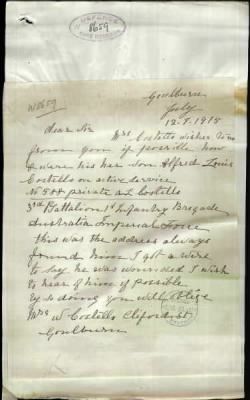 DEFENCE
8659
W8659
Goulburn
July
12.7.1915
dear Sir
Mrs Costello wishes to no
from you if possible how
& were his her Son Alfred Louis
Costello on active service
No 588 private A L Costello
3rd Battalion 1st Infantry Brigade
Australia Imperial Force
this was the address always
found him I got a wire
to say he was wounded I wish
to hear of him if possible
By so doing you will oblige
Mrs W Costello Cliford st
Goulburn